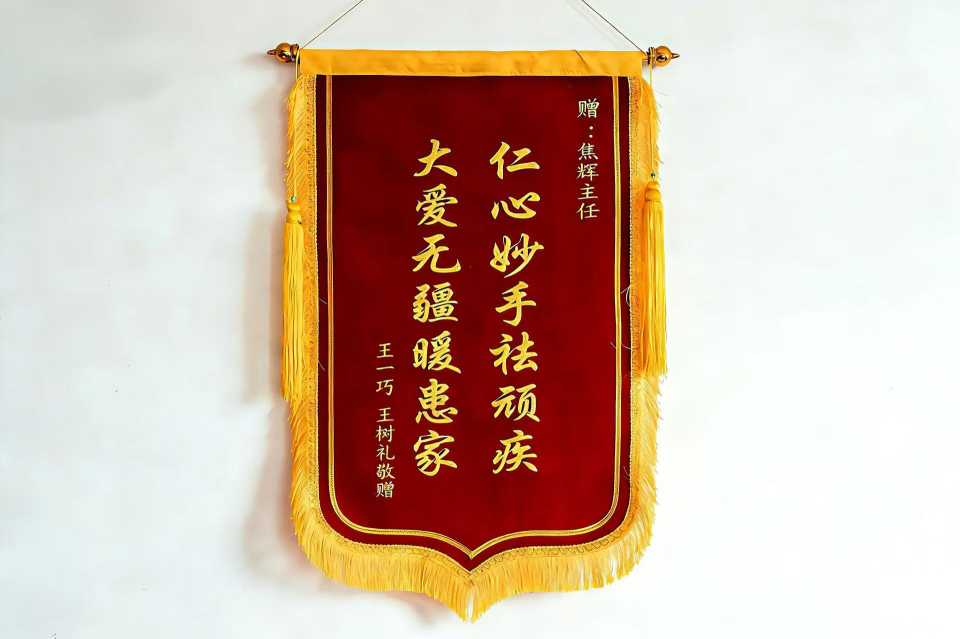 赠：焦辉主任
仁心妙手祛顽疾
大爱无疆暖患家
王一巧 王树礼敬赠